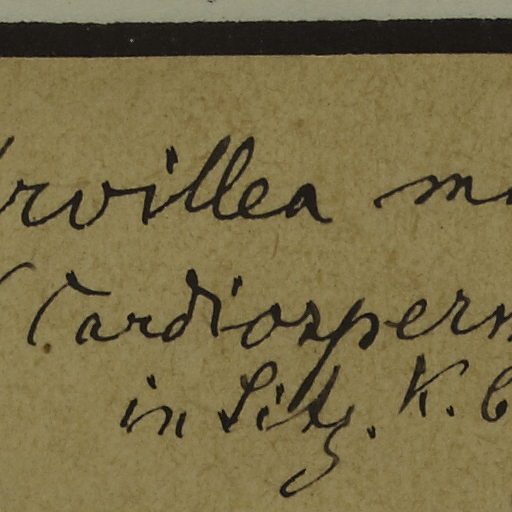 rvillea m
Cardiosperm
in Sitz. K.